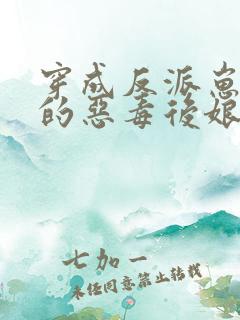 穿成反派崽
的惡毒後娘
七加一
未经同意禁止转载